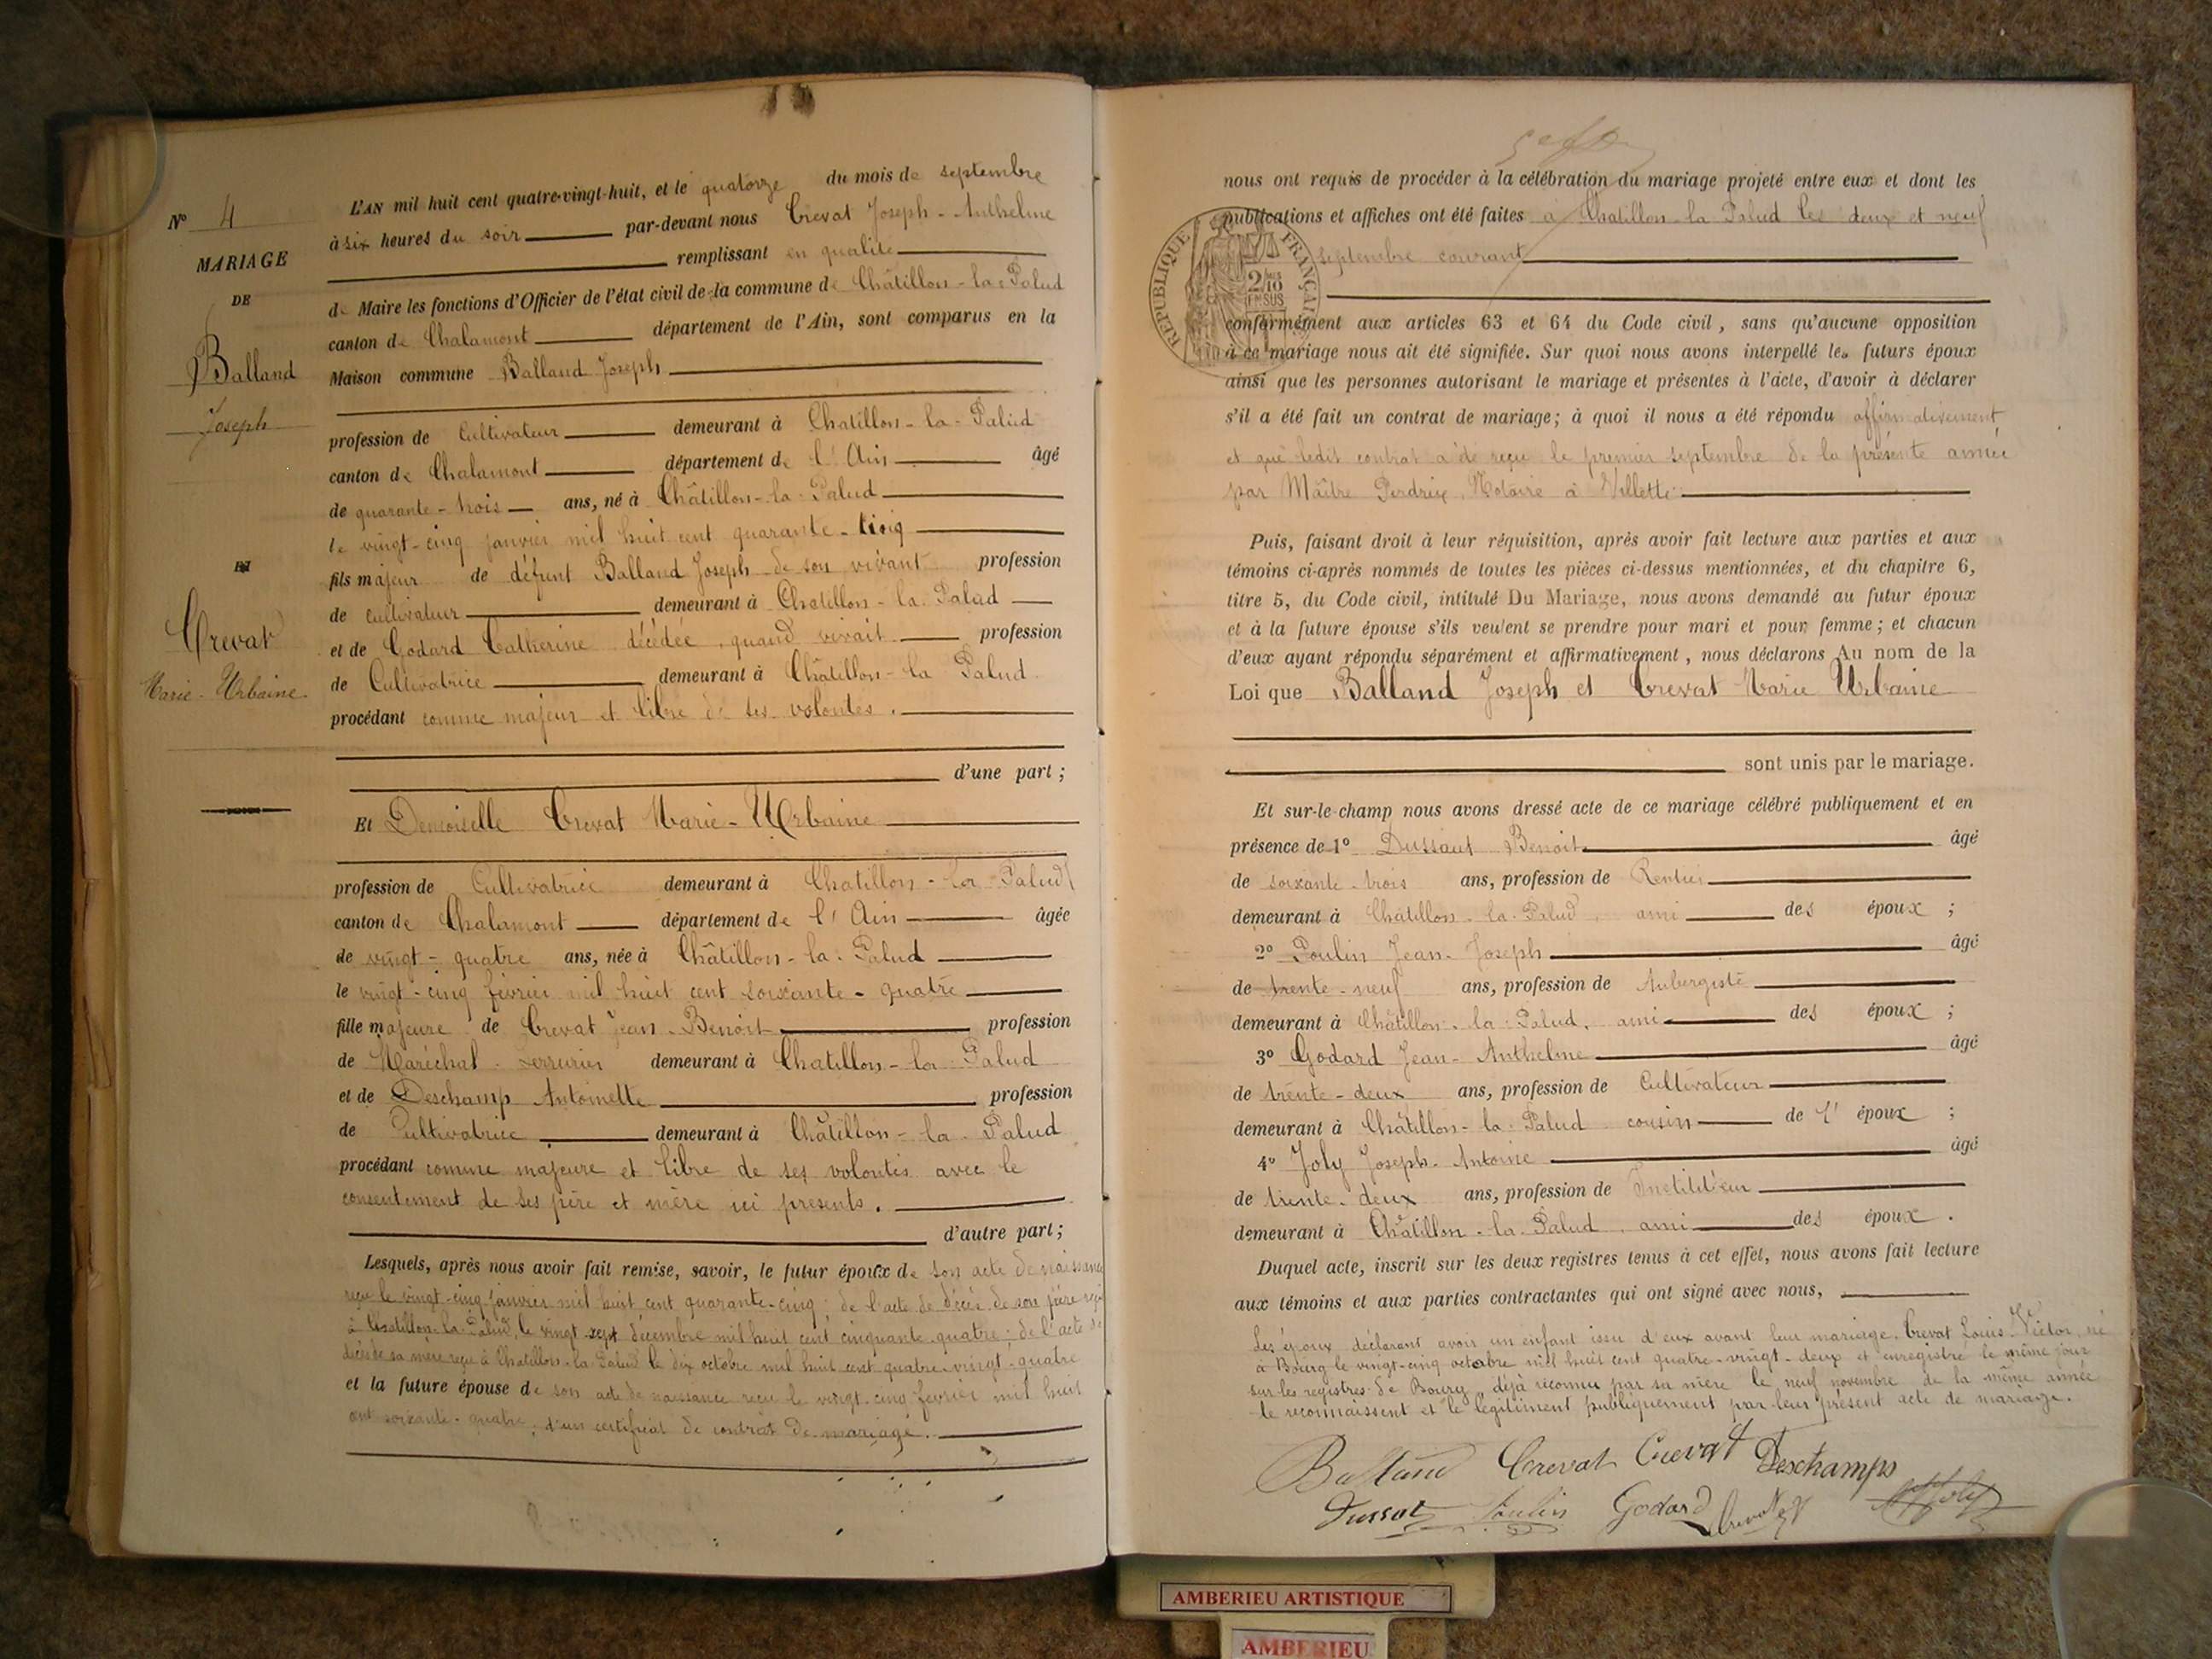 N° 4
MARIAGE
DE
Balland
Joseph
ET
Crevat
Marie-Urbaine
L'AN mil huit cent quatre-vingt-huit, et le quatorze du mois de septembre
à six heures du soir par-devant nous Crevat Joseph-Anthelme
remplissant en qualité
de Maire les fonctions d'Officier de l'état civil de la commune de Châtillon-la-Palud
canton de Chalamont département de l'Ain, sont comparus en la
Maison commune Balland Joseph
profession de Cultivateur demeurant à Chatillon-la-Palud
canton de Chalamont département de l'Ain âgé
de quarante-trois ans, né à Châtillon-la-Palud
le vingt-cinq janvier mil huit cent quarante-cinq
fils majeur de défunt Balland Joseph de son vivant profession
de cultivateur demeurant à Chatillon-la-Palud
et de Godard Catherine décédée, quand vivait profession
de Cultivatrice demeurant à Châtillon-la Palud
procédant comme majeur et libre de ses volontés.
d'une part ;
Et Demoiselle Crevat Marie-Urbaine
profession de Cultivatrice demeurant à Chatillon-la-Palud
canton de Chalamont département de l'Ain âgée
de vingt-quatre ans, née à Châtillon-la-Palud
le vingt-cinq février mil huit cent soixante-quatre
fille majeure de Crevat Jean-Benoit profession
de Maréchal-serrurier demeurant à Chatillon-la-Palud
et de Deschamp Antoinette profession
de Cultivatrice demeurant à Châtillon-la-Palud
procédant comme majeure et libre de ses volontés avec le
consentement de ses père et mère ici présents.
d'autre part ;
Lesquels, après nous avoir fait remise, savoir, le futur époux de son acte de naissance
reçu le vingt-cinq janvier mil huit cent quarante-cinq ; de l'acte de décès de son père reçu
à Chatillon-la-Palud, le vingt sept décembre mil huit cent cinquante quatre ; de l'acte de
décès de sa mère reçu à Chatillon-la-Palud le dix octobre mil huit cent quatre-vingt-quatre
et la future épouse de son acte de naissance reçu le vingt-cinq février mil huit
cent soixante-quatre, d'un certificat de contrat de mariage.
nous ont requis de procéder à la célébration du mariage projeté entre eux et dont les
publications et affiches ont été faites à Chatillon-la Palud les deux et neuf
septembre courant
REPUBLIQUE FRANÇAISE
2/10
EN SUS
conformément aux articles 63 et 64 du Code civil, sans qu'aucune opposition
à ce mariage nous ait été signifiée. Sur quoi nous avons interpellé les futurs époux
ainsi que les personnes autorisant le mariage et présentes à l'acte, d'avoir à déclarer
s'il a été fait un contrat de mariage ; à quoi il nous a été répondu affirmativement
et que ledit contrat a été reçu le premier septembre de la présente année
par Maître Perdrix, Notaire à Villette
Puis, faisant droit à leur réquisition, après avoir fait lecture aux parties et aux
témoins ci-après nommés de toutes les pièces ci-dessus mentionnées, et du chapitre 6,
titre 5, du Code civil, intitulé Du Mariage, nous avons demandé au futur époux
et à la future épouse s'ils veulent se prendre pour mari et pour femme ; et chacun
d'eux ayant répondu séparément et affirmativement, nous déclarons Au nom de la
Loi que Balland Joseph et Crevat Marie Urbaine
sont unis par le mariage.
Et sur-le-champ nous avons dressé acte de ce mariage célébré publiquement et en
présence de 1° Dussaut Benoit âgé
de soixante-trois ans, profession de Rentier
demeurant à Châtillon-la-Palud, ami des époux ;
2° Poulin Jean-Joseph âgé
de trente-neuf ans, profession de Aubergiste
demeurant à Châtillon-la-Palud, ami des époux ;
3° Godard Jean-Anthelme âgé
de trente-deux ans, profession de Cultivateur
demeurant à Châtillon-la-Palud cousin de l'époux ;
4° Joly Joseph-Antoine âgé
de trente-deux ans, profession de Instituteur
demeurant à Châtillon-la-Palud, ami des époux.
Duquel acte, inscrit sur les deux registres tenus à cet effet, nous avons fait lecture
aux témoins et aux parties contractantes qui ont signé avec nous,
Les époux déclarent avoir un enfant issu d'eux avant leur mariage. Crevat Louis-Victor, né
à Bourg le vingt-cinq octobre mil huit cent quatre-vingt-deux et enregistré le même jour
sur les registres de Bourg, déjà reconnu par sa mère le neuf novembre de la même année
le reconnaissent et le légitiment publiquement par leur présent acte de mariage.
Balland Crevat Crevat Deschamps
Dussot Poulin Godard Crevat Joly
AMBERIEU ARTISTIQUE
AMBERIEU